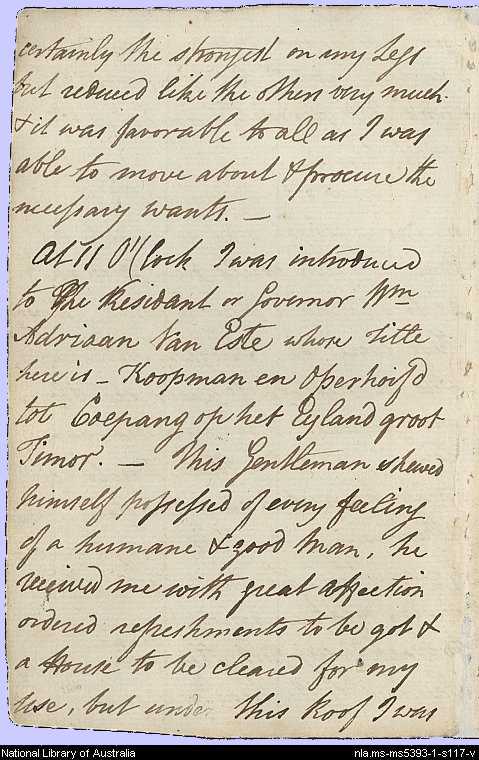 certainly the strongest on my Legs
but reduced like the others very much.
& it was favorable to all as I was
able to move about & procure the
necessary wants. —
At 11 O'Clock I was introduced
to The Resident or Governor Wm
Adriaan Van Este whose Title
here is – Koopman en Operhoifd
tot Coepang op het Eyland groot
Timor. — This Gentleman shewed
himself possessed of every feeling
of a humane & good Man, he
received me with great affection
ordered refreshments to be got &
a House to be cleared for my
use, but under this Roof I was
National Library of Australia
nla.ms-ms5393-1-s117-v